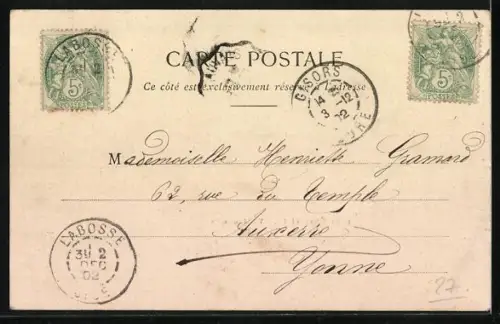 LABOSSE
5
5
CARTE POSTALE
Ce côté est exclusivement réservé à l'adresse
GISORS
EURE
Mademoiselle Henriette Gramard
62, rue du Temple
Auxerre
Yonne
LABOSSE
31 2
DEC
02
OISE
27